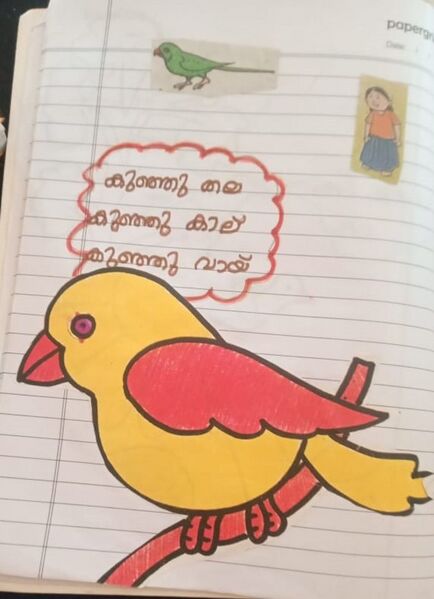 papergr
Date:
കുഞ്ഞു തല
കുഞ്ഞു കാല്
കുഞ്ഞു വായ്